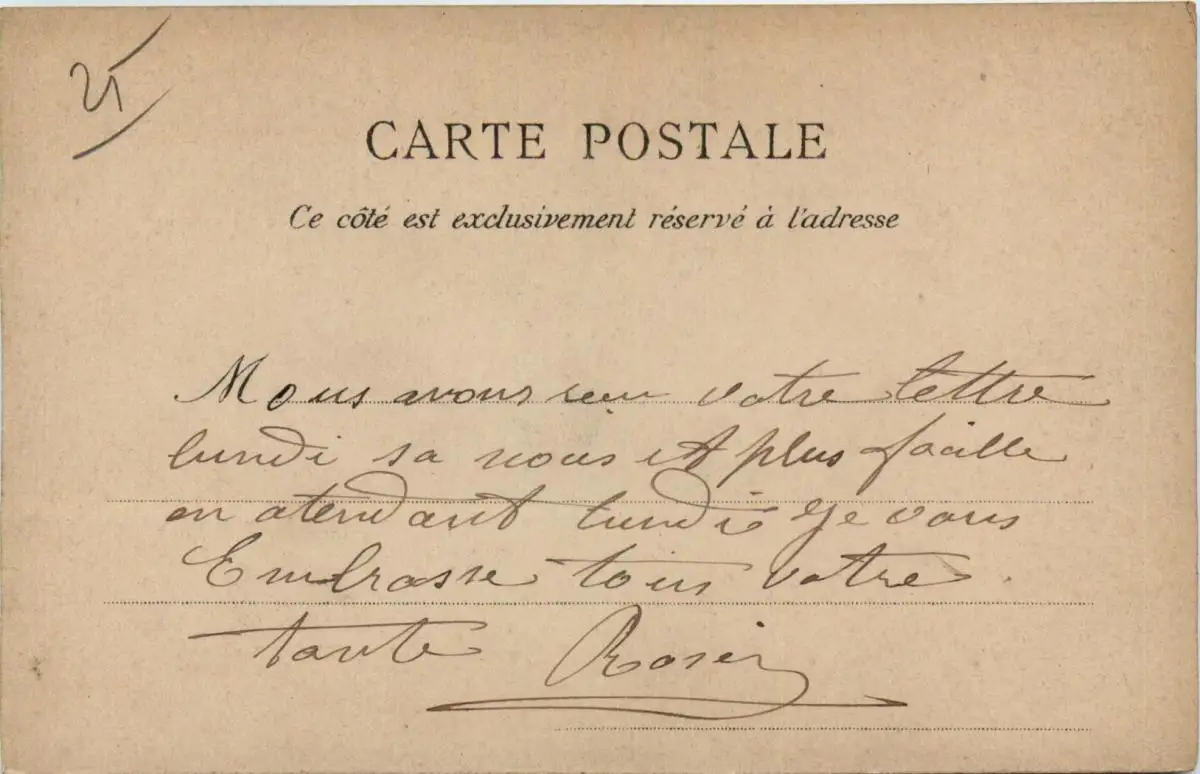 25
CARTE POSTALE
Ce côté est exclusivement réservé à l'adresse
Nous avons reu votre lettre
lundi sa nous et plus facille
en atendant lundi Je vous
Embrasse tous votre
tante